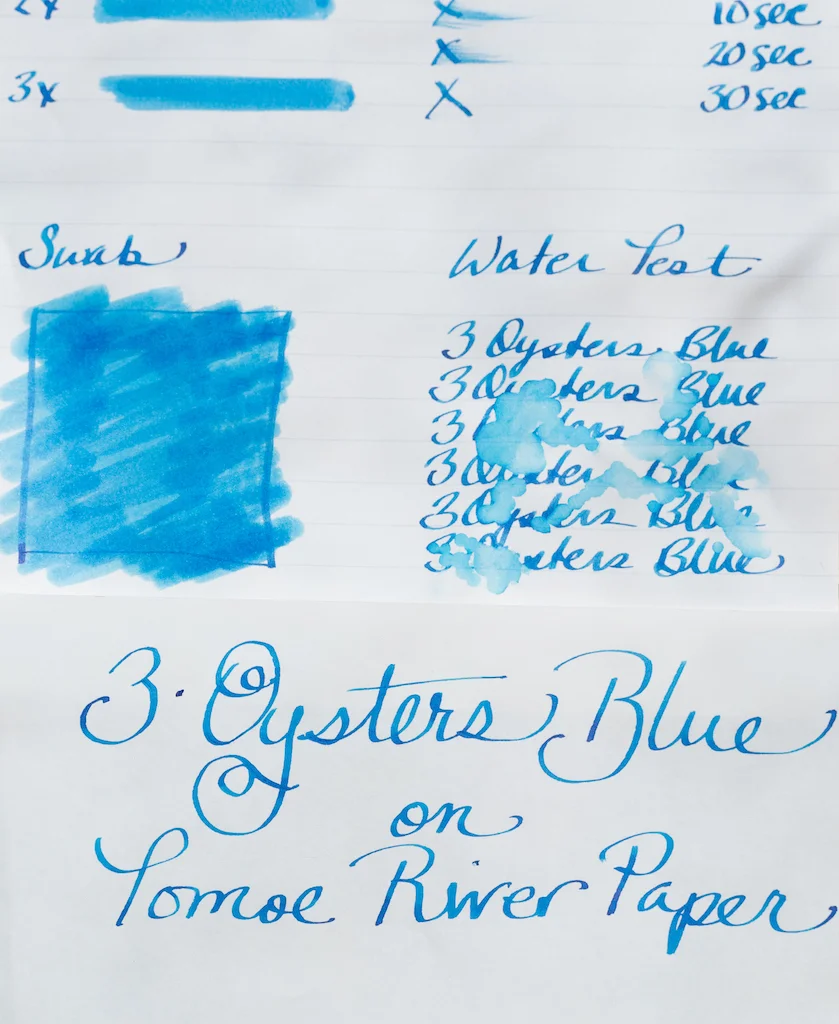 2x X 10 sec
X 20 sec
3x X 30 sec
Swab Water Test
3 Oysters Blue
3 Oysters Blue
3 Oysters Blue
3 Oysters Blue
3 Oysters Blue
3 Oysters Blue
3. Oysters Blue
on
Tomoe River Paper